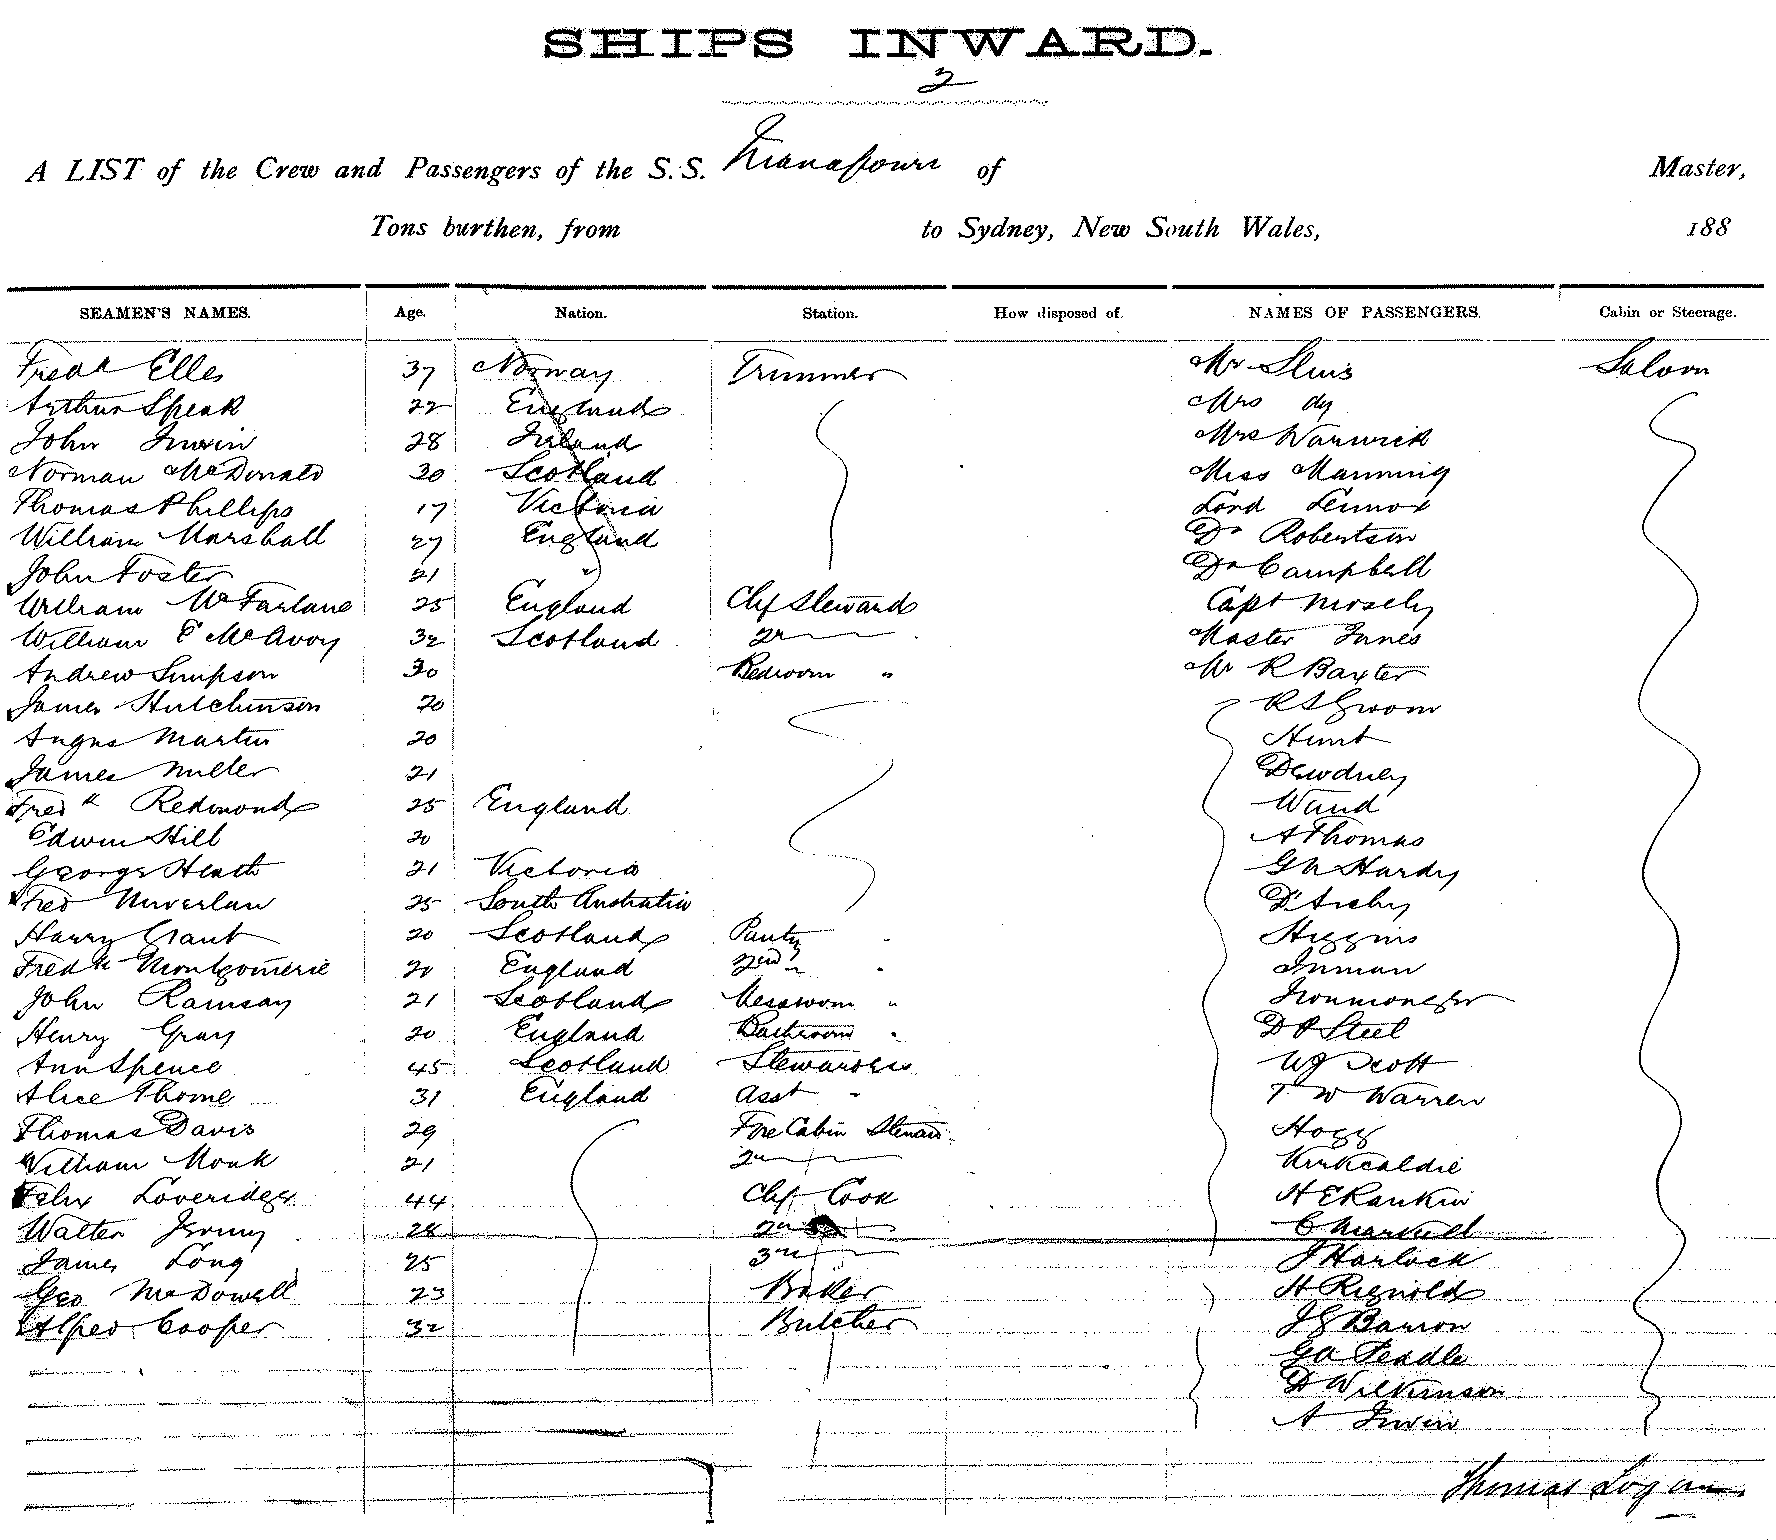 SHIPS INWARD.
2
A LIST of the Crew and Passengers of the S.S. Manapouri of Master,
Tons burthen, from to Sydney, New South Wales, 188
SEAMEN'S NAMES. Age. Nation. Station. How disposed of. NAMES OF PASSENGERS. Cabin or Steerage.
Fredk Elles 37 Norway Trimmer Mr Sluis Saloon
Arthur Speak 22 England Mrs do
John Irwin 28 Ireland Mrs Warwick
Norman McDonald 30 Scotland Miss Manning
Thomas Phillips 17 Victoria Lord Lennox
William Marshall 27 England Dr Robertson
John Foster 21 " Dr Campbell
William McFarlane 25 England Chf Steward Capt Mosely
William C McAvoy 32 Scotland 2n Master Innes
Andrew Simpson 30 Bedroom " Mr R Baxter
James Hutchinson 20 R S Groom
Angus Martin 20 Hunt
James Miller 21 Dewdney
Fredk Redmond 25 England Wand
Edwin Hill 20 A Thomas
George Heath 21 Victoria G N Hardy
Fred 25 South Australia D'Archy
Harry Grant 20 Scotland Pantry " Higgins
Fredk Montgomerie 20 England 2nd " Inman
John Ramsay 21 Scotland Messroom " Ironmonger
Henry Gray 20 England Bathroom " D P Steel
Ann Spence 45 Scotland Stewardess W J Scott
Alice Thorne 31 England Asst " T W Warren
Thomas Davis 29 Fore Cabin Steward Hogg
William Monk 21 2n Kirkcaldie
Felix Loveridge 44 Chf Cook H E Rankin
Walter 28 2n C
James Long 25 3rd J Harlock
Geo McDowell 23 Baker H Reynolds
Alfred Cooper 32 Butcher J G Barron
G A Peadle
D Wilkinson
A Irwin
Thomas Logan